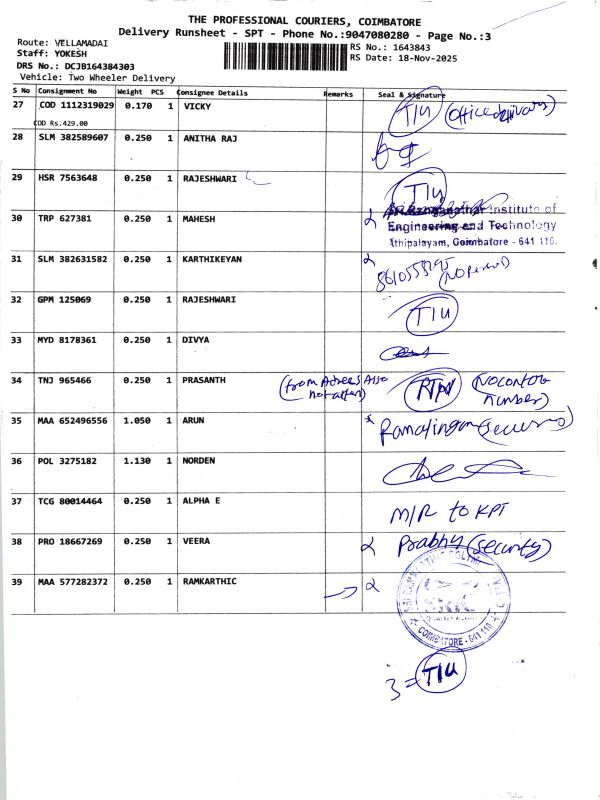 THE PROFESSIONAL COURIERS, COIMBATORE
Delivery Runsheet - SPT - Phone No.:9047080280 - Page No.:3
Route: VELLAMADAI
Staff: YOKESH
DRS No.: DCJB164384303
Vehicle: Two Wheeler Delivery
RS No.: 1643843
RS Date: 18-Nov-2025
S No Consignment No Weight PCS Consignee Details Remarks Seal & Signature
27 COD 1112319029 0.170 1 VICKY TIU
COD Rs.429.00
28 SLM 382589607 0.250 1 ANITHA RAJ
29 HSR 7563648 0.250 1 RAJESHWARI TIU
Institute of
30 TRP 627381 0.250 1 MAHESH Engineering and Technology
Athipalayam, Coimbatore - 641 110.
31 SLM 382631582 0.250 1 KARTHIKEYAN
32 GPM 125069 0.250 1 RAJESHWARI TIU
33 MYD 8178361 0.250 1 DIVYA
34 TNJ 965466 0.250 1 PRASANTH (from Adrees Also
number)
35 MAA 652496556 1.050 1 ARUN Ramalingam
36 POL 3275182 1.130 1 NORDEN
37 TCG 80014464 0.250 1 ALPHA E M/R to KPT
38 PRO 18667269 0.250 1 VEERA Prabhy (Security)
39 MAA 577282372 0.250 1 RAMKARTHIC
COIMBATORE - 641 110
3 = TIU